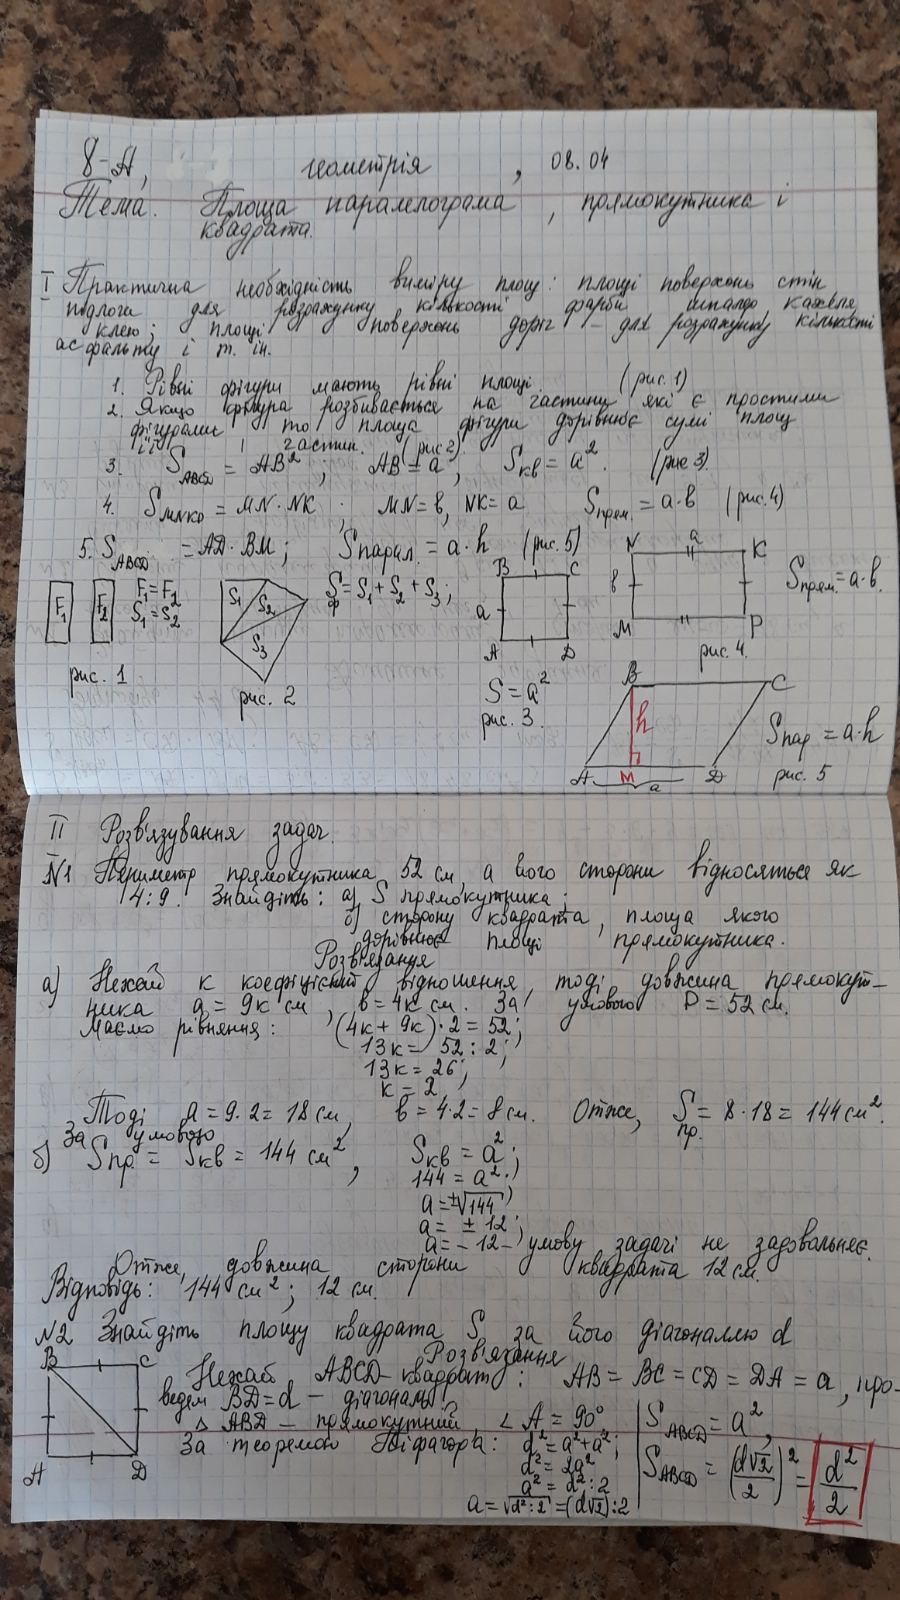 8-А, геометрія, 08.04
Тема. Площа паралелограма, прямокутника і
квадрата.
I Практична необхідність виміру площ: площі поверхонь стін,
підлоги для розрахунку кількості фарби, шпалер, кахеля,
клею; площі поверхонь доріг – для розрахунку кількості
асфальту і т. ін.
1. Рівні фігури мають рівні площі. (рис. 1)
2. Якщо фігура розбивається на частини, які є простими
фігурами, то площа фігури дорівнює сумі площ
її частин. (рис 2).
3. S_ABCD = AB²; AB = a, Sкв = a². (рис 3).
4. S_MNKP = MN · NK; MN = b, NK = a Sпрям. = a·b (рис. 4)
5. S_ABCD = AD · BM; Sпарал. = a·h (рис. 5)
F₁ F₂ F₁=F₂
S₁=S₂
рис. 1
S₁ S₂ S₃
Sф = S₁ + S₂ + S₃;
рис. 2
B C
a
A D
S = a²
рис. 3
N a K
b
M P
Sпрям. = a·b.
рис. 4.
B C
h
A M D
a
Sпар = a·h
рис. 5
II Розв'язування задач.
N1 Периметр прямокутника 52 см, а його сторони відносяться як
4:9. Знайдіть: а) S прямокутника;
б) сторону квадрата, площа якого
дорівнює площі прямокутника.
Розв'язання
а) Нехай к коефіцієнт відношення, тоді довжина прямокут–
ника a = 9к см, b = 4к см. За умовою P = 52 см.
Маємо рівняння: (4к + 9к)·2 = 52;
13к = 52 : 2;
13к = 26;
к = 2
Тоді a = 9·2 = 18 см, b = 4·2 = 8 см. Отже, Sпр. = 8·18 = 144 см².
За умовою
б) Sпр. = Sкв = 144 см², Sкв = a²;
144 = a²;
a = ±√144;
a = ± 12;
a = – 12 – умову задачі не задовольнює.
Отже, довжина сторони квадрата 12 см.
Відповідь: 144 см²; 12 см.
N2 Знайдіть площу квадрата S за його діагоналлю d
Розв'язання
B C
A D
Нехай ABCD – квадрат: AB = BC = CD = DA = a, про–
ведем BD = d – діагональ.
△ ABD – прямокутний, ∠ A = 90°
За теоремою Піфагора: d² = a² + a²;
d² = 2a²
a² = d² : 2
a = √d² : 2 = (d√2) : 2
S_ABCD = a²,
S_ABCD = (d√2/2)² = d²/2